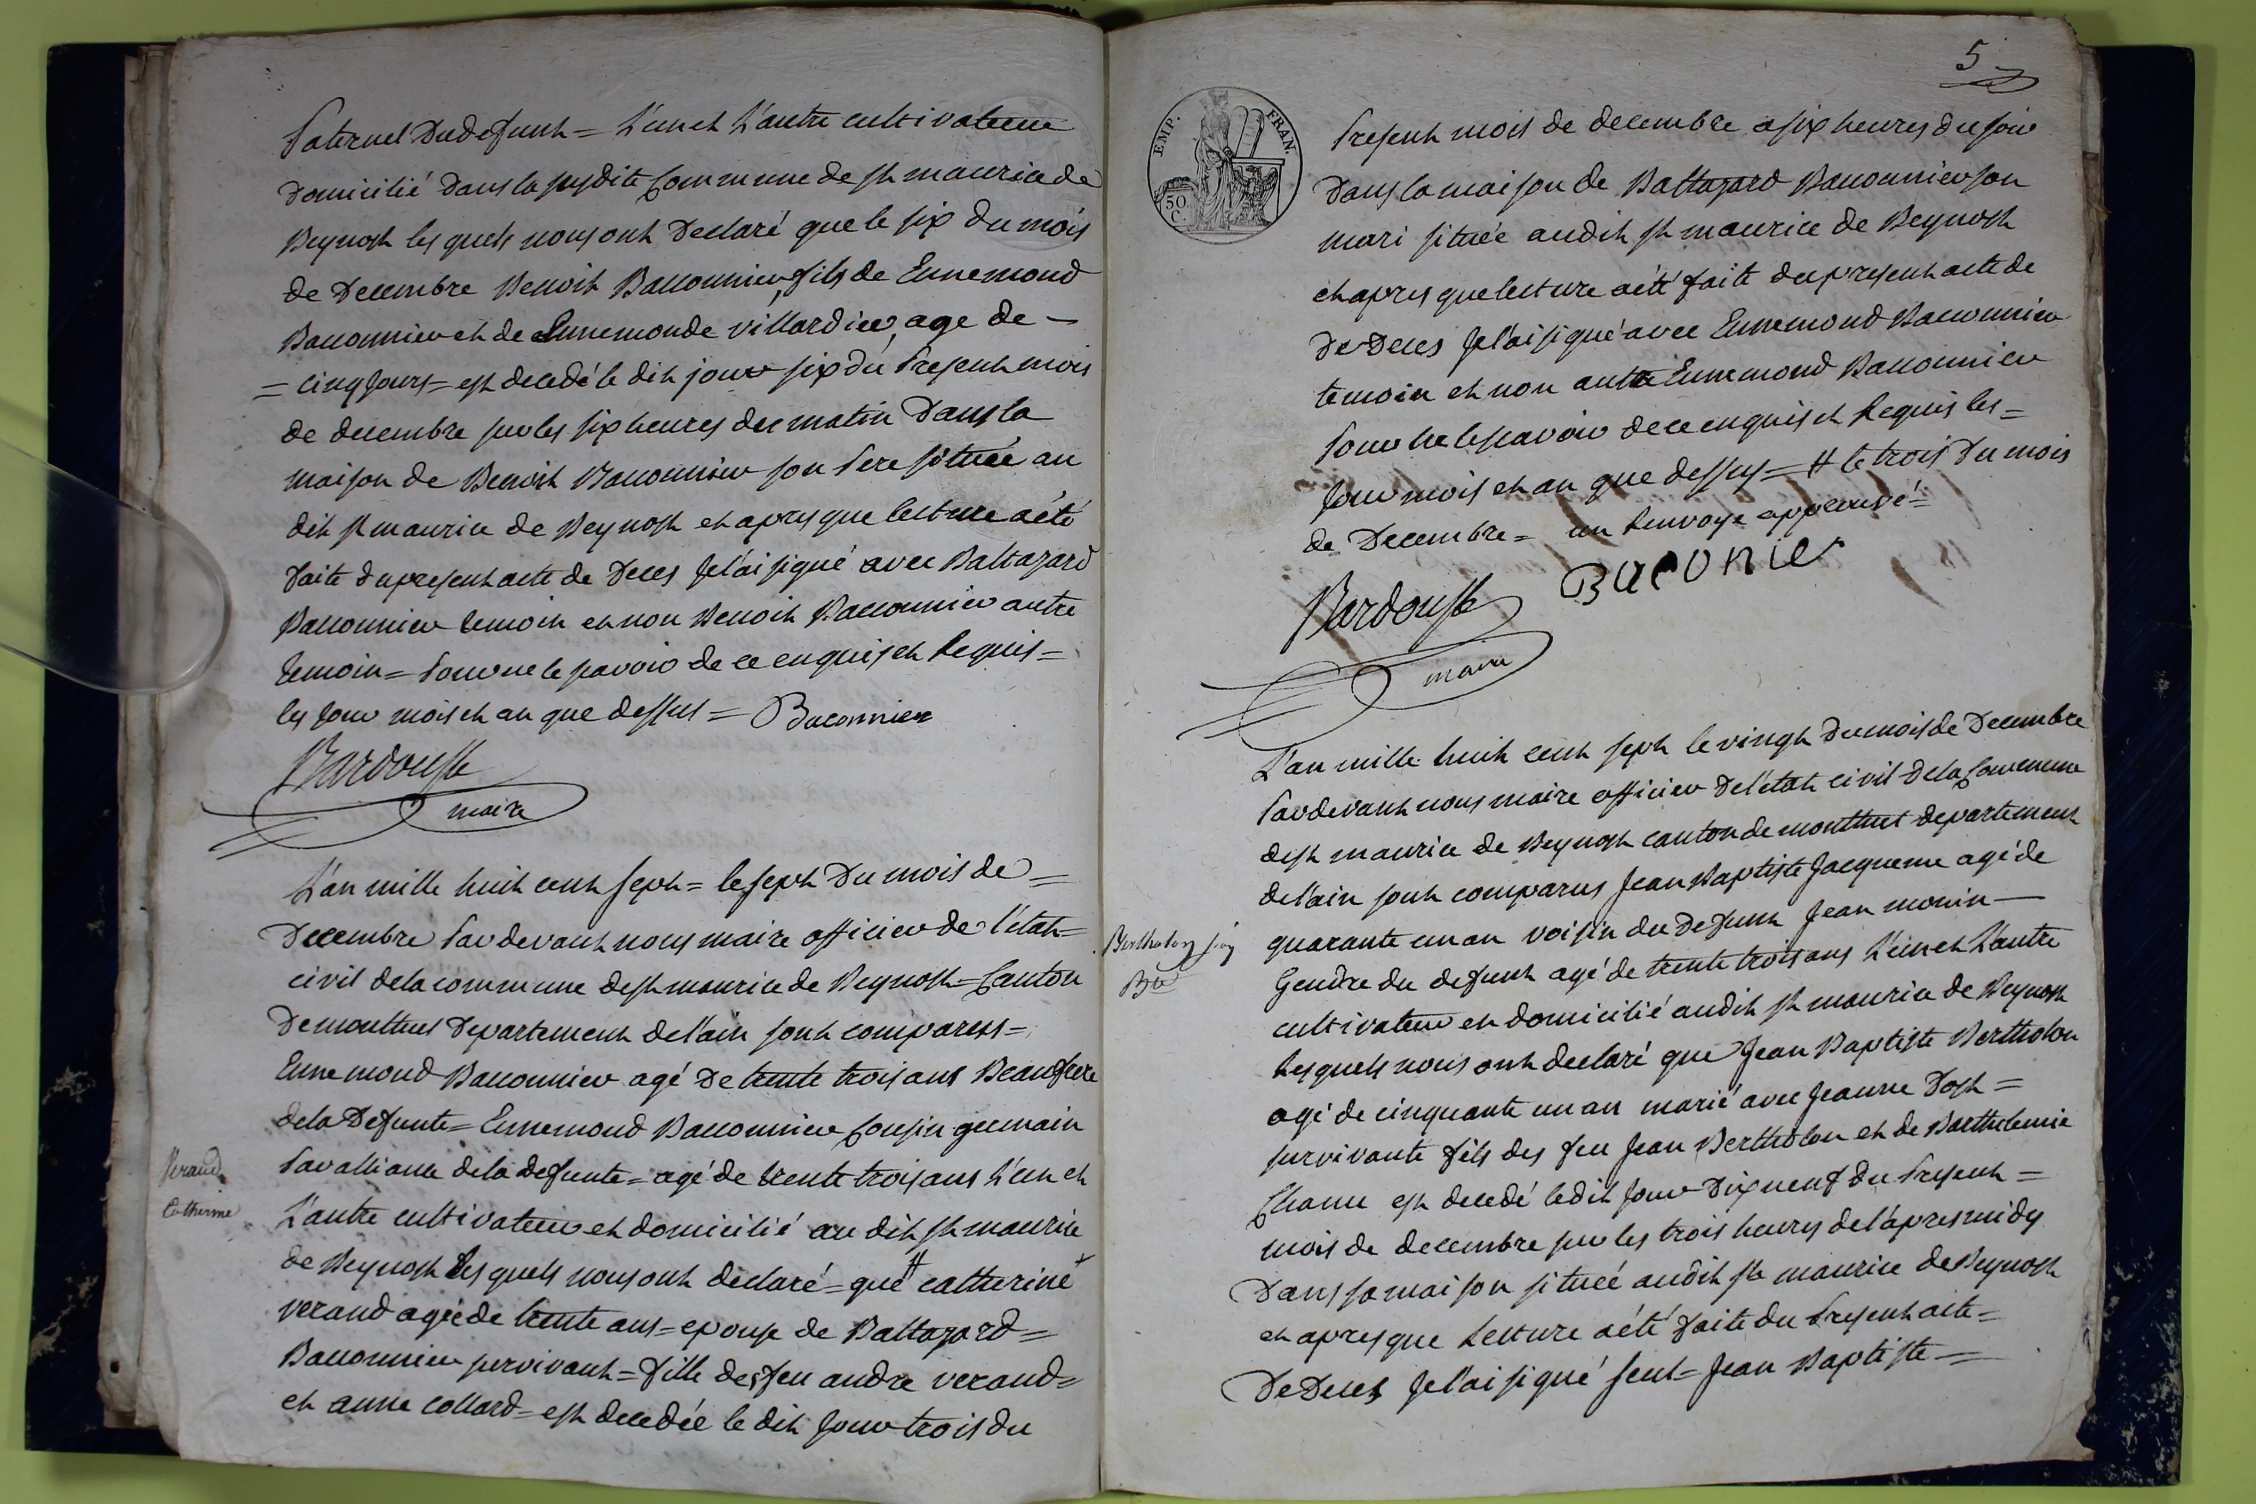 Paternel du defunt = L'un et L'autre cultivateur
domicilié dans la susdite Commune de st maurice de
Beynost les quels nous ont Declaré que le six du mois
de Decembre Benoit Baconnier fils de Ennemond
Baconnier et de Ennemonde villardier age de —
= cinq Jours = est decedé le dit jour six du Present mois
de decembre sur les six heures du matin Dans la
maison de Benoit Baconnier son Pere située au
dit st maurice de Beynost et apres que lecture a été
faite du present acte de Deces Je l'ai signé avec Baltazard
Baconnier temoin et non Benoit Baconnier autre
temoin = Pour ne le savoir de ce enquis et Requis =
les Jour mois et an que dessus = Baconnier
Bardousse
maire
L'an mille huit cent sept = le sept Du mois de =
Decembre Par devant nous maire officier de l'état =
civil de la commune de st maurice de Beynost = Canton
De montluel Departement de l'ain sont comparus =
Ennemond Baconnier agé de trente trois ans Beaufrere
de la Defunte = Ennemond Baconnier Cousin germain
Veraud
Catherine
Par alliance de la defunte = agé de trente trois ans L'un et
L'autre cultivateur et domicilié au dit st maurice
de Beynost Les quels nous ont declaré = que # catherine +
verand agée de trente ans = epouse de Baltazard =
Baconnier survivant = fille des feu andre verand =
et anne collard = est decedée le dit Jour trois du
5
EMP. FRAN.
50 C.
Present mois de decembre a six heures du soir
Dans la maison de Baltazard Baconnier son
mari située audit st maurice de Beynost
et apres que lecture a été faite du present acte de
De Deces Je l'ai signé avec Ennemond Baconnier
temoin et non autre Ennemond Baconnier
Pour ne le scavoir de ce enquis et Requis les =
Jour mois et an que dessus = # le trois Du mois
de Decembre = un Renvoye approuvé =
Baconier
Bardousse
maire
L'an mille huit cent sept le vingt du mois de Decembre
Par devant nous maire officier de l'état civil de la Commune
de st maurice de Beynost canton de montluel departement
de l'ain sont comparus Jean Baptiste Jacqueme agé de
Bertholon Jean
Bte
quarante un an voisin du Defunt Jean monin —
Gendre du defunt agé de trente trois ans L'un et L'autre
cultivateur et domicilié audit st maurice de Beynost
Lesquels nous ont declaré que Jean Baptiste Bertholon
agé de cinquante un an marié avec Jeanne Dost =
survivante fils des feu Jean Bertholon et de Barthelemie
Chanu est decedé ledit Jour Dix neuf du Present =
mois de decembre sur les trois heures de l'apres midy
Dans sa maison située audit st maurice de Beynost
et apres que Lecture a été faite du Present acte =
De Deces Je l'ai signé seul = Jean Baptiste =